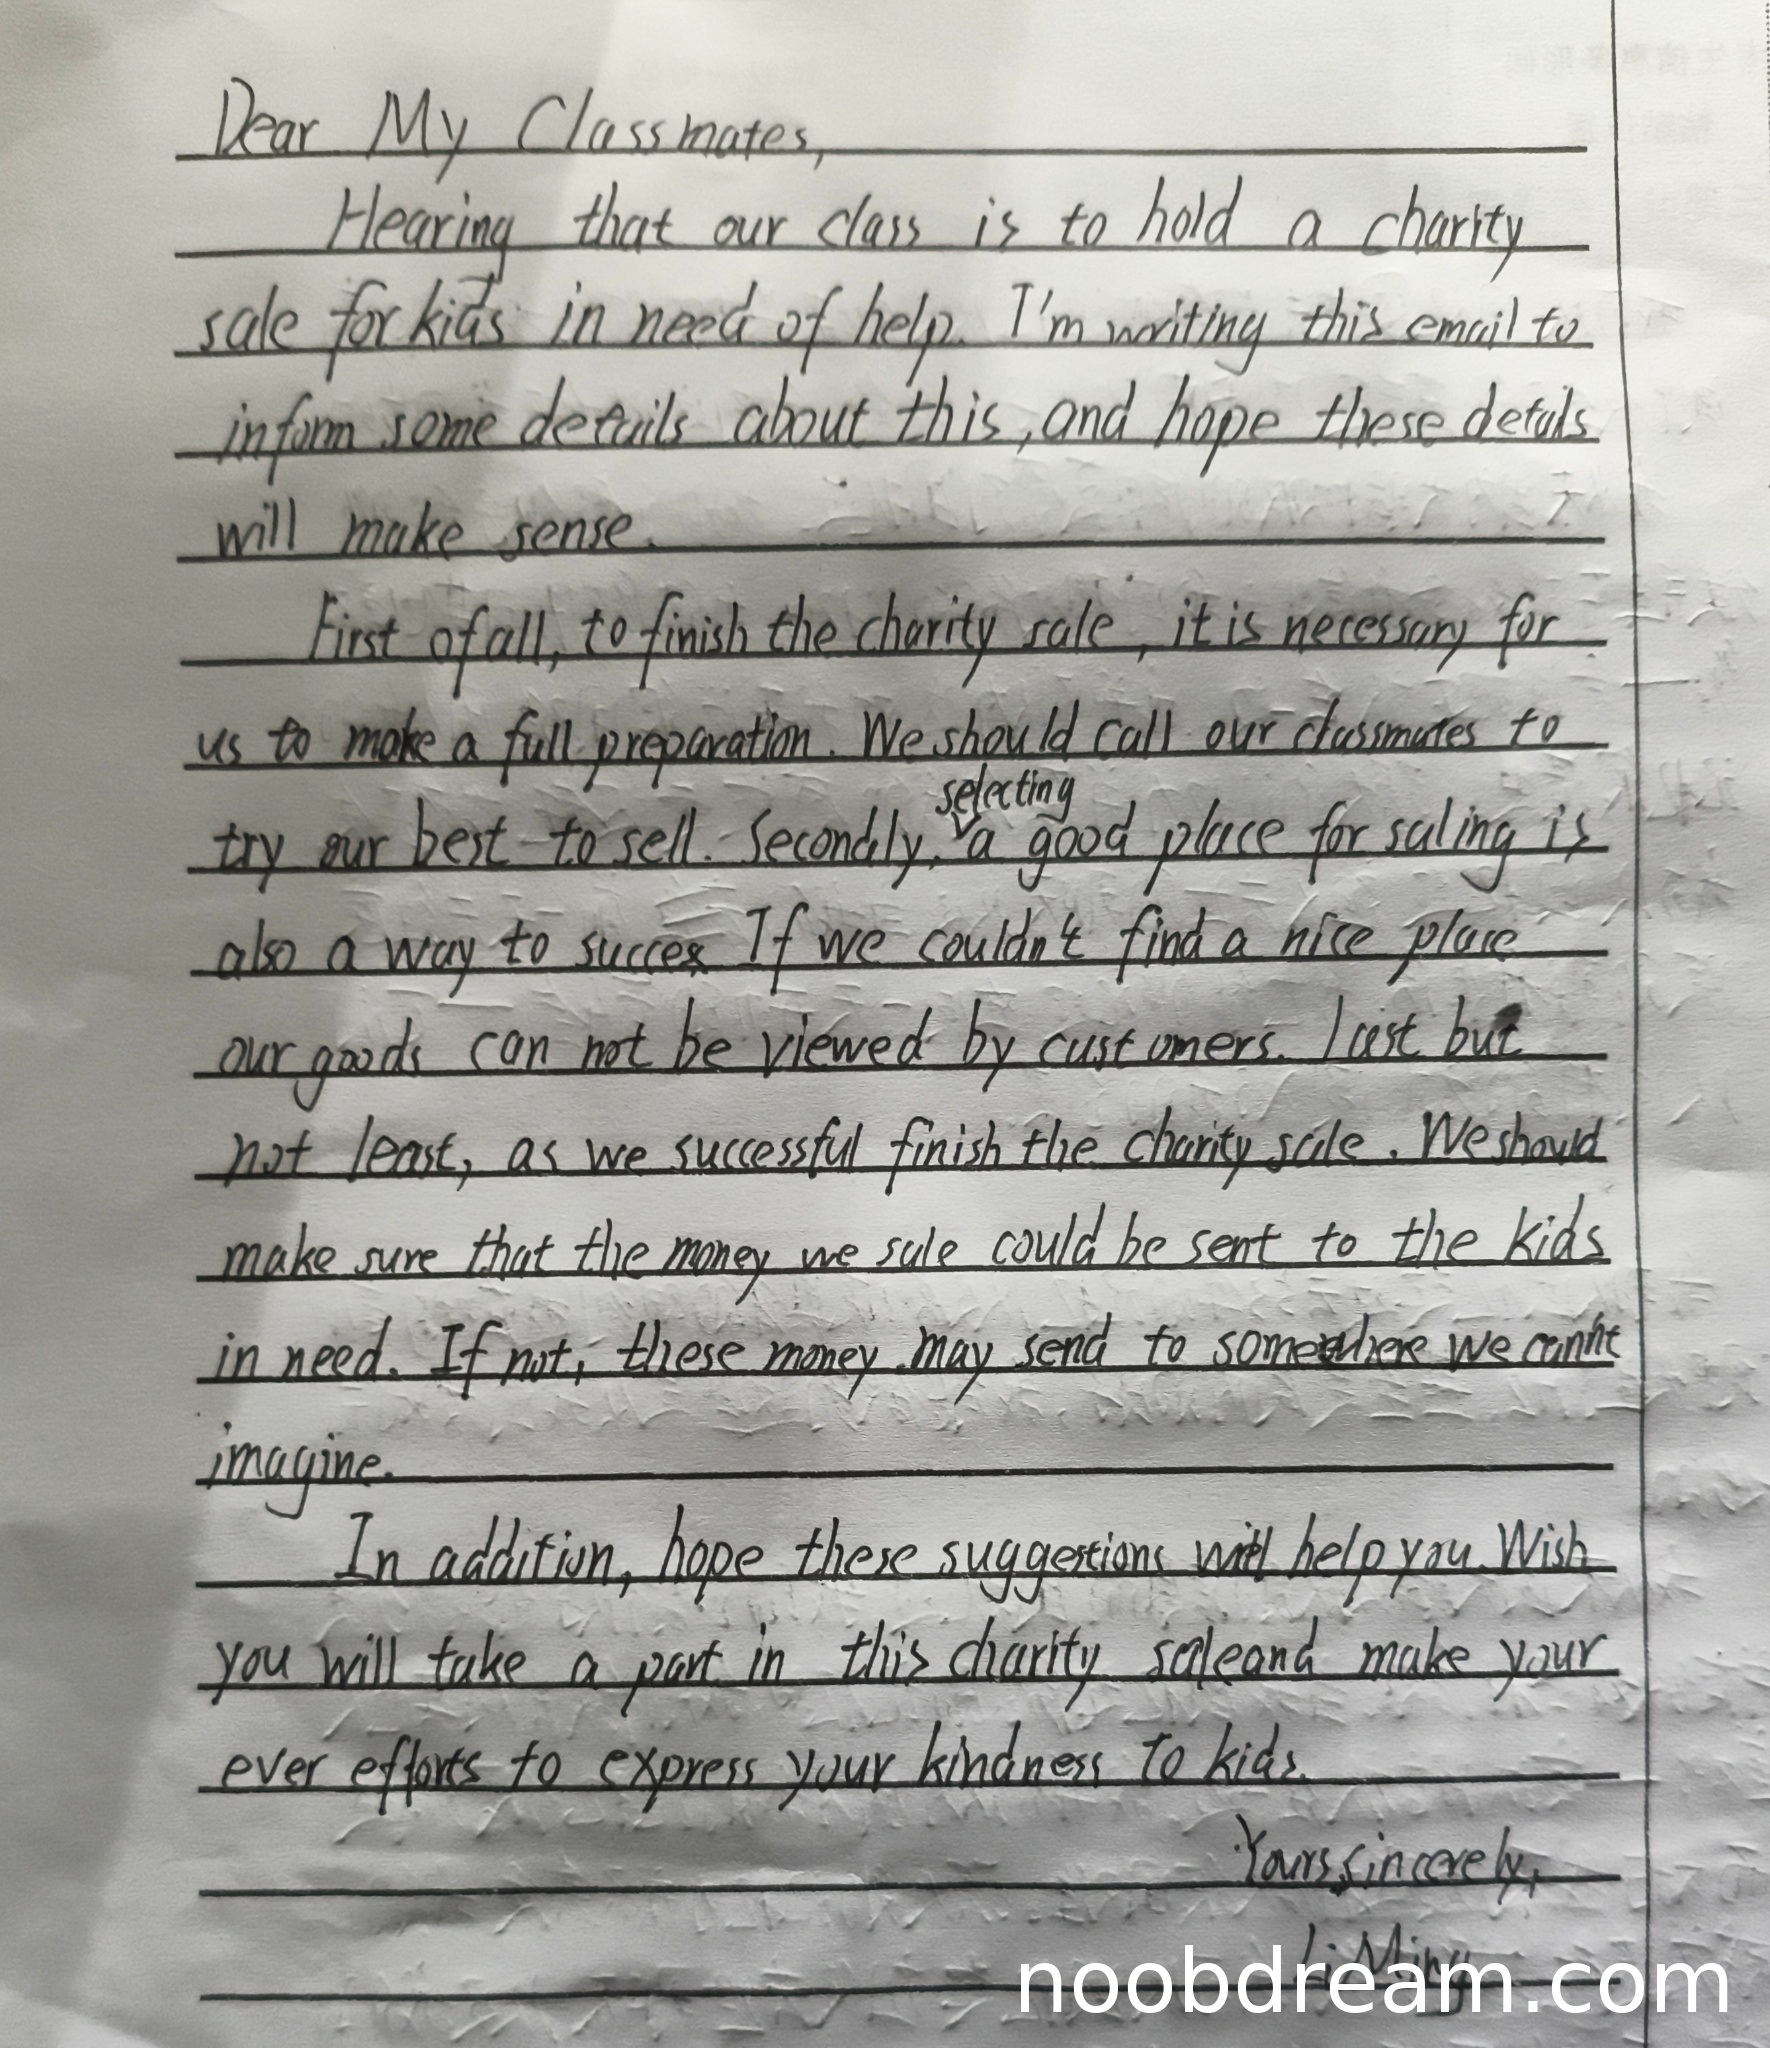 Dear My Classmates,
Hearing that our class is to hold a charity
sale for kids in need of help. I'm writing this email to
inform some details about this, and hope these details
will make sense.
First of all, to finish the charity sale, it is necessary for
us to make a full preparation. We should call our classmates to
selecting
try our best to sell. Secondly, a good place for saling is
also a way to success If we couldn't find a nice place
our goods can not be viewed by customers. Last but
not least, as we successful finish the charity sale. We should
make sure that the money we sale could be sent to the kids
in need. If not, these money may send to somewhere we cannot
imagine.
In addition, hope these suggestions will help you. Wish
you will take a part in this charity sale and make your
ever efforts to express your kindness to kids.
Yours sincerely,
Li Ming
noobdream.com